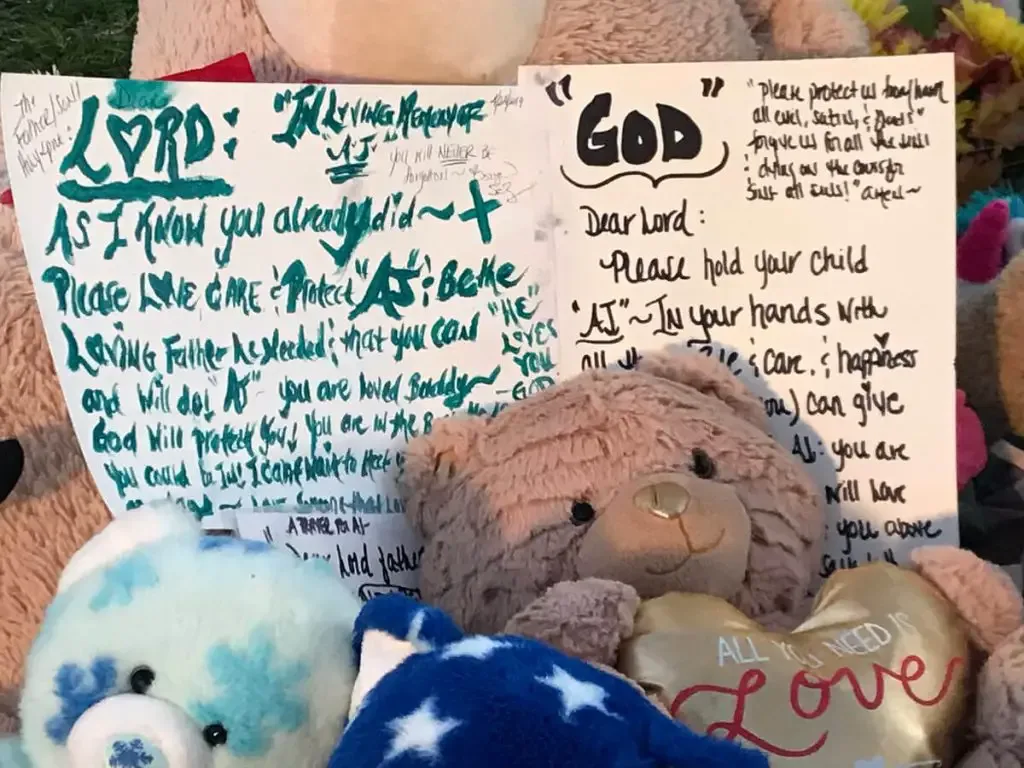 The
Father/Son/
Holy
Dear
LORD:
"IN LOVING MEMORY OF
"AJ"
you will NEVER BE
forgotten ~
As I KNOW you already did ~
Please LOVE CARE & Protect "AJ" & Be the
LOVING Father he Needed & that you can
and will do! "AJ" you are loved Buddy ~
"HE
LOVES
YOU
~ GOD
God will protect You! You are in the
you could be in! I can't wait to meet
A PRAYER FOR AJ-
Dear Lord father
"GOD"
"Please protect us from
all evil, satan, &
forgive us for all the
dying on the cross for
all
Dear Lord:
Please hold your child
"AJ" ~ IN your hands with
all & care, & happiness
(you) can give
AJ: you are
will have
you above
ALL YOU NEED IS
Love